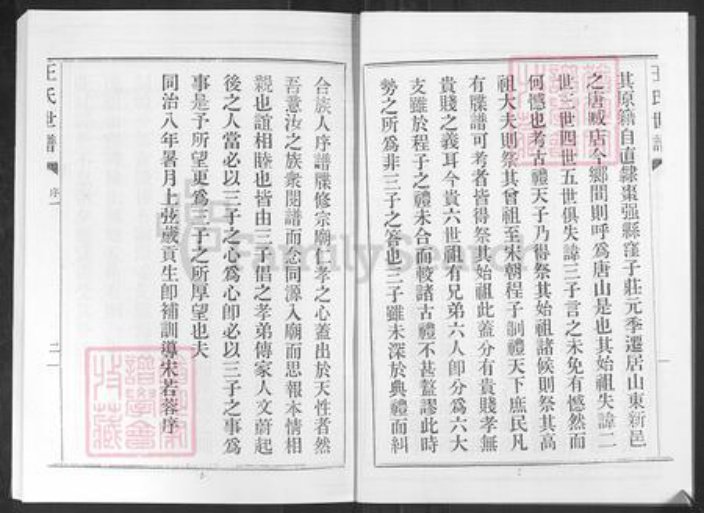 王氏世譜
其原籍自直隸棗强縣窪子莊元季遷居山東新邑
之唐㖑店今鄉間則呼為唐山是也其始祖失諱二
世三世四世五世俱失諱三子言之未免有憾然而
何憾也考古禮天子乃得祭其始祖諸候則祭其高
祖大夫則祭其曾祖至宋朝程子制禮天下庶民凡
有牒譜可考者皆得祭其始祖此蓋分有貴賤孝無
貴賤之義耳今貴六世祖有兄弟六人卽分為六大
支雖於程子之禮未合而較諸古禮不甚盭謬此時
勢之所為非三子之咎也三子雖未深於典禮而糾
合族人序譜牒修宗廟仁孝之心蓋出於天性者然
吾意汝之族衆閱譜而念同源入廟而思報本情相
親也誼相睦也皆由三子倡之孝弟傳家人文蔚起
後之人當必以三子之心為心卽必以三子之事為
事是予所望更為三子之所厚望也夫
同治八年暑月上弦歲貢生卽補訓導宋若蓉序
王氏世譜
序
二
FamilySearch